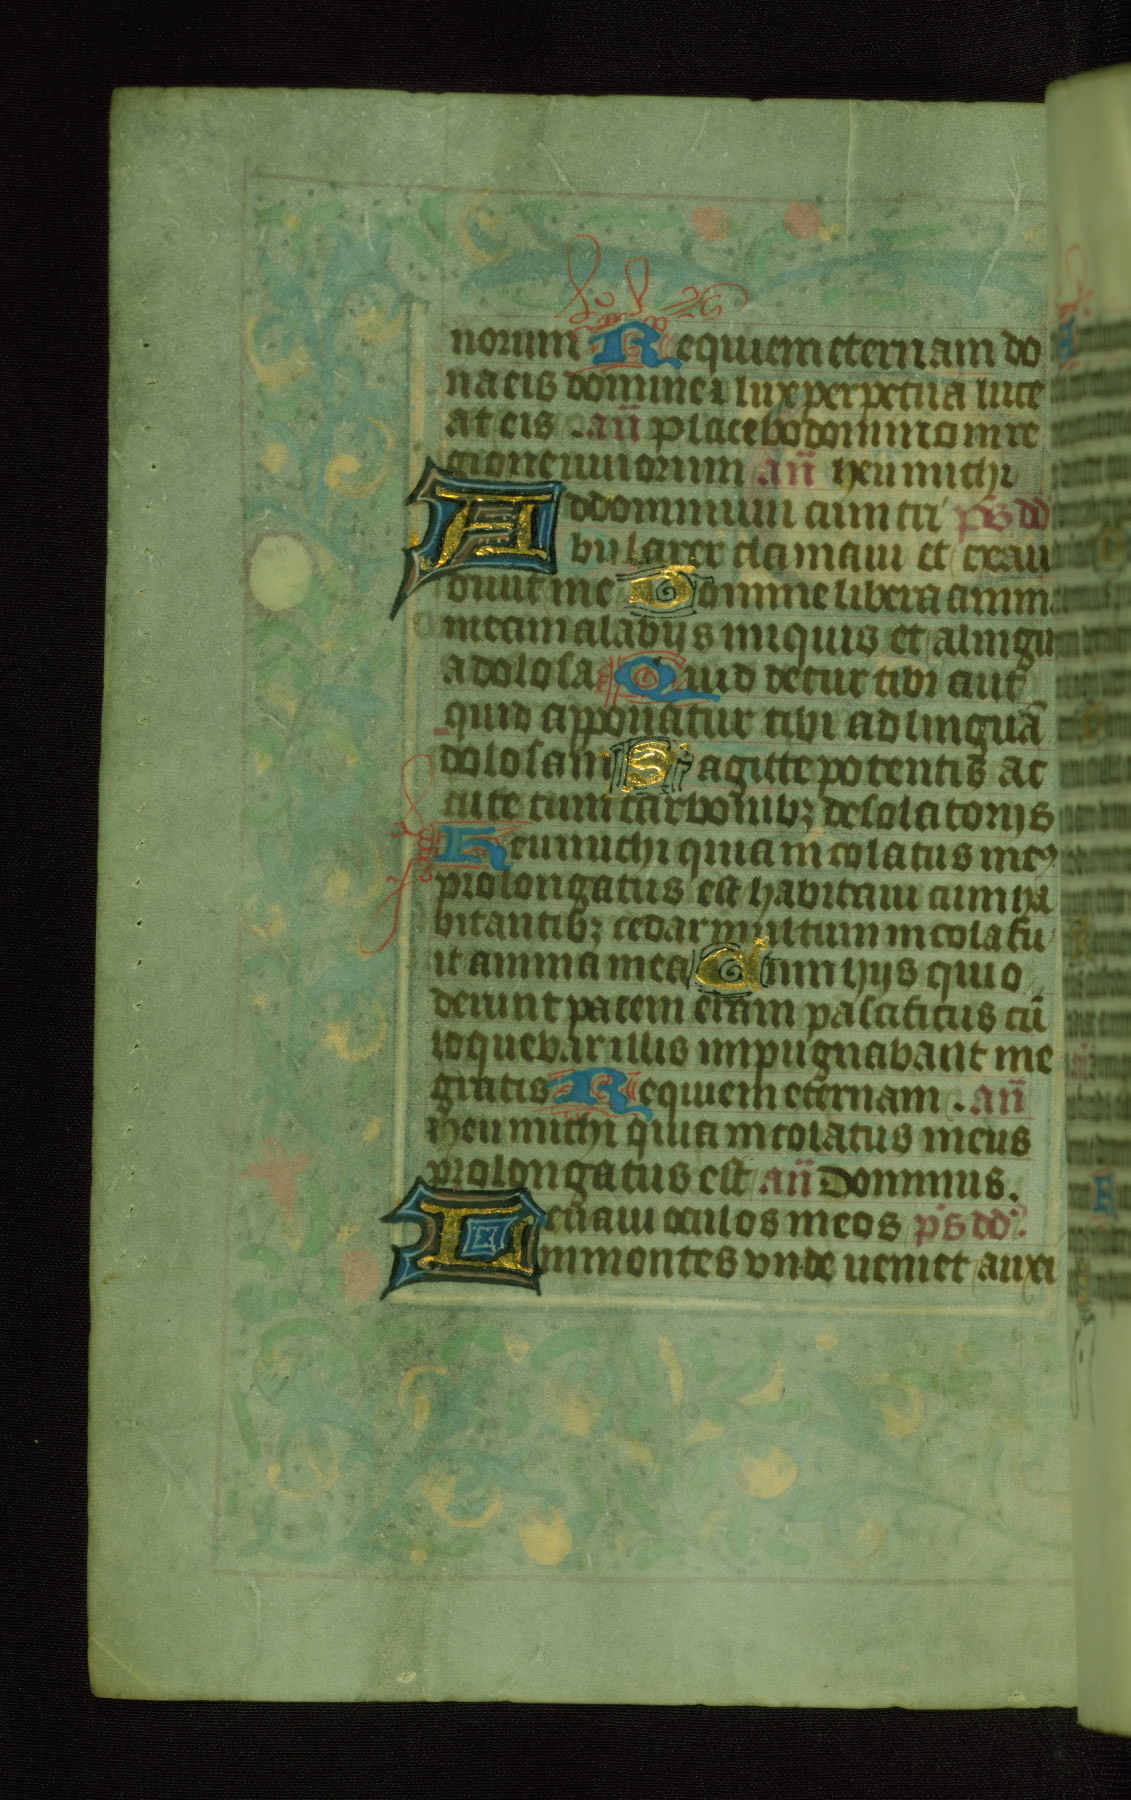 norum Requiem eternam do
na eis domine ⁊ lux perpetua luce
at eis . an̄ Placebo domino in re
gione uiuorum an̄ heu michi
Ad dominum cum tri ps̄ dd
bularer clamaui et exau
diuit me Domine libera anima
meam a labijs iniquis et a lingu
a dolosa Quid detur tibi aut
quid apponatur tibi ad linguā
dolosam Sagitte potentis ac
cute cum carbonibꝫ desolatorijs
Heu michi quia incolatus meꝰ
prolongatus est habitaui cum ha
bitantibꝫ cedar multum incola fu
it anima mea Cum hijs qui o
derunt pacem eram pascificus cū
loquebar illis inpugnabant me
gratis Requiem eternam . an̄
Heu michi quia incolatus meus
prolongatus est an̄ Dominus .
Leuaui oculos meos ps̄ dd.
in montes vnde ueniet auxi